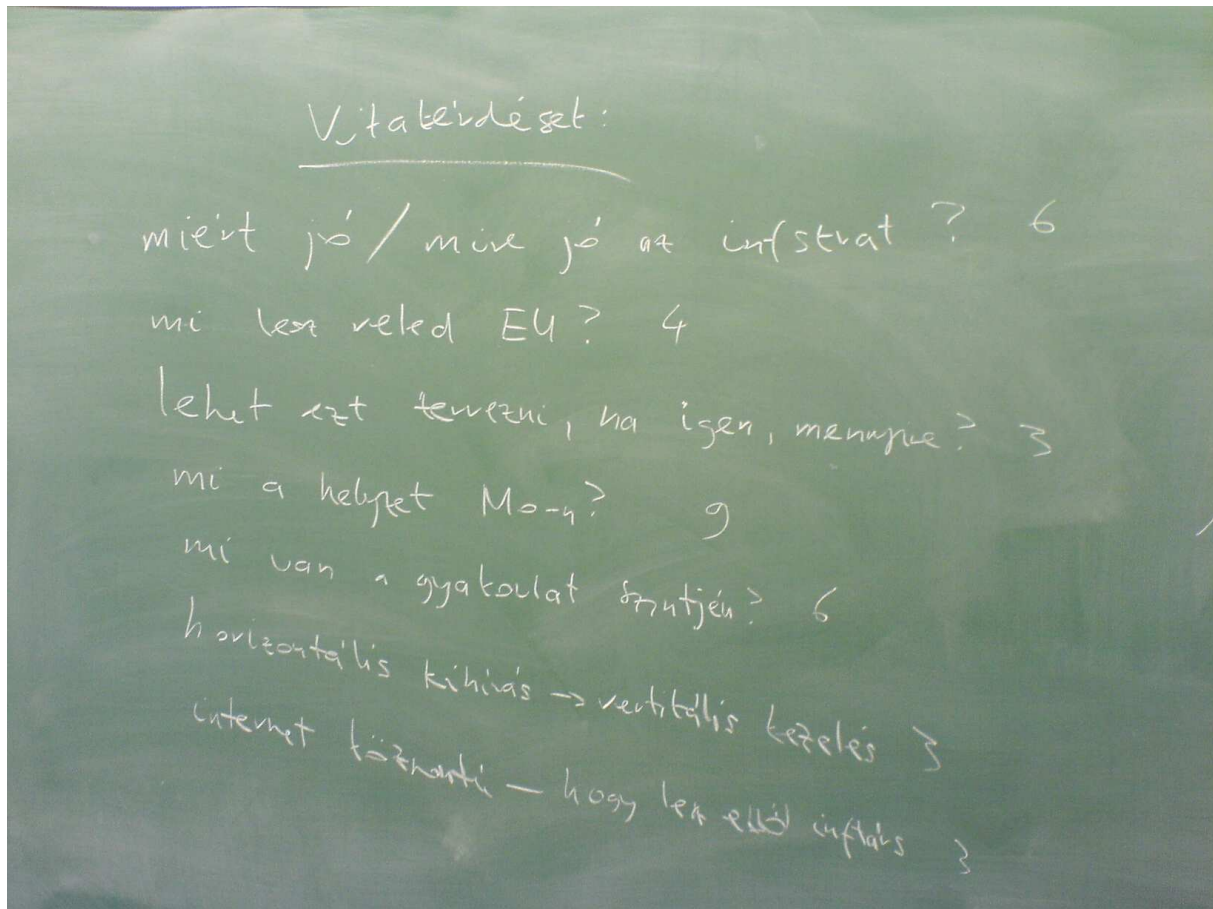 Vitakérdések:
miért jó / mire jó az infstrat? 6
mi lesz veled EU? 4
lehet ezt tervezni, ha igen, mennyire? 3
mi a helyzet Mo-n? 9
mi van a gyakorlat szintjén? 6
horizontális kihívás -> vertikális kezelés 3
internet – hogy lesz ebből inftárs 3